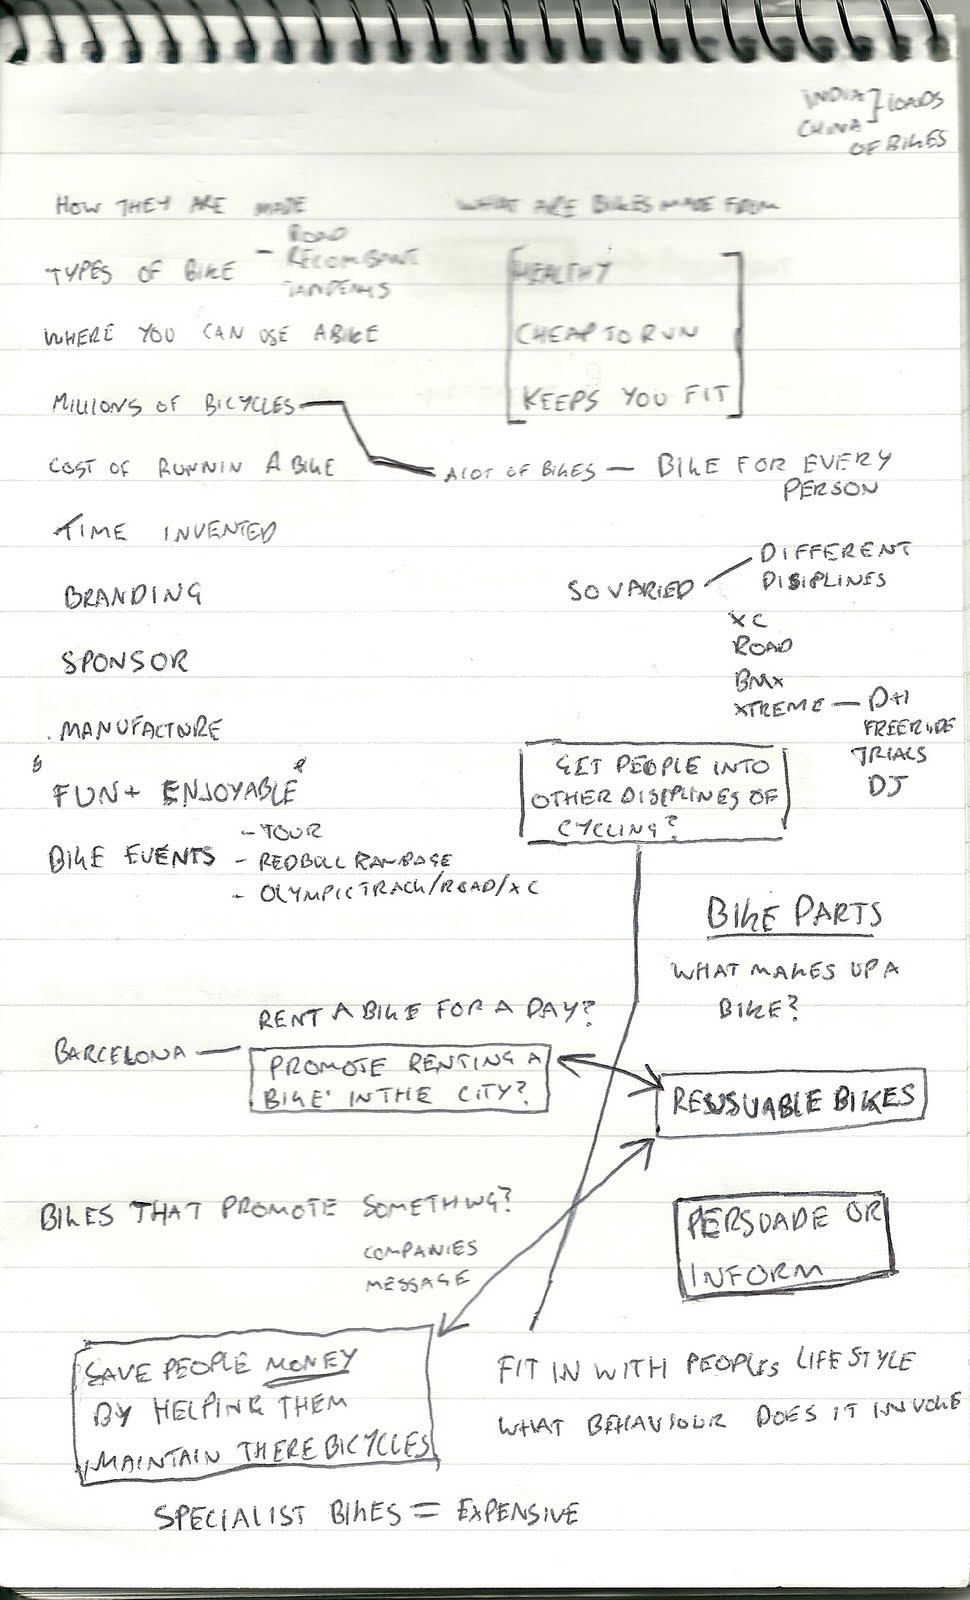 INDIA } LOADS
CHINA
OF BIKES
HOW THEY ARE MADE
WHAT ARE BIKES MADE FROM
TYPES OF BIKE -
ROAD
RECOMBANT
TANDEMS
HEALTHY
CHEAP TO RUN
KEEPS YOU FIT
WHERE YOU CAN USE A BIKE
MILLIONS OF BICYCLES
COST OF RUNNIN A BIKE
A LOT OF BIKES — BIKE FOR EVERY
PERSON
TIME INVENTED
BRANDING
SPONSOR
MANUFACTURE
SO VARIED
DIFFERENT
DISIPLINES
XC
ROAD
BMX
XTREME — DH
FREERIDE
TRIALS
DJ
"FUN + ENJOYABLE"
BIKE EVENTS
- TOUR
- REDBULL RAMPAGE
- OLYMPIC TRACK/ROAD/XC
GET PEOPLE INTO
OTHER DISIPLINES OF
CYCLING?
BIKE PARTS
WHAT MAKES UP A
BIKE?
RENT A BIKE FOR A DAY?
BARCELONA —
PROMOTE RENTING A
BIKE IN THE CITY?
RESUSUABLE BIKES
BIKES THAT PROMOTE SOMETHING?
COMPANIES
MESSAGE
PERSUADE OR
INFORM
SAVE PEOPLE MONEY
BY HELPING THEM
MAINTAIN THERE BICYCLES
FIT IN WITH PEOPLES LIFESTYLE
WHAT BEHAVIOUR DOES IT INVOKE
SPECIALIST BIKES = EXPENSIVE